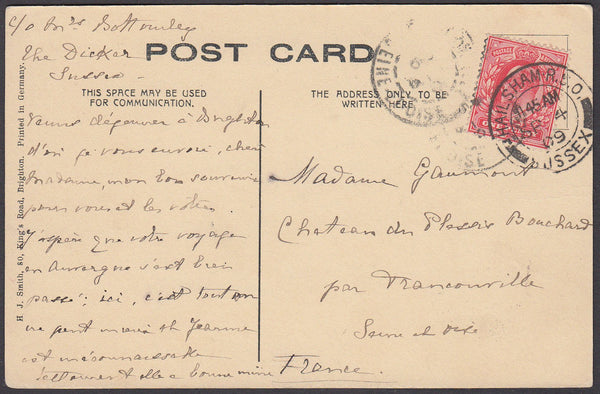 c/o Mrs Bottomley
The Dicker
Sussex
POST CARD
THIS SPACE MAY BE USED
FOR COMMUNICATION.
THE ADDRESS ONLY TO BE
WRITTEN HERE
HAILSHAM R.S.O
11.45 AM
09
SUSSEX
OISE
OISE
POSTAGE
Venue déjeuner à Brighton
d'où je vous envoie, chère
Madame, mon bon souvenir
pour vous et les vôtres.
J'espère que votre voyage
en Auvergne s'est bien
passé: ici, c'est tout on
ne peut mieux et Jeanne
est méconnaissable
tellement elle a bonne mine
Madame Gaumont
Chateau du Plessis Bouchard
par Franconville
Seine et Oise
France.
H. J. Smith, 80, King's Road, Brighton. Printed in Germany.